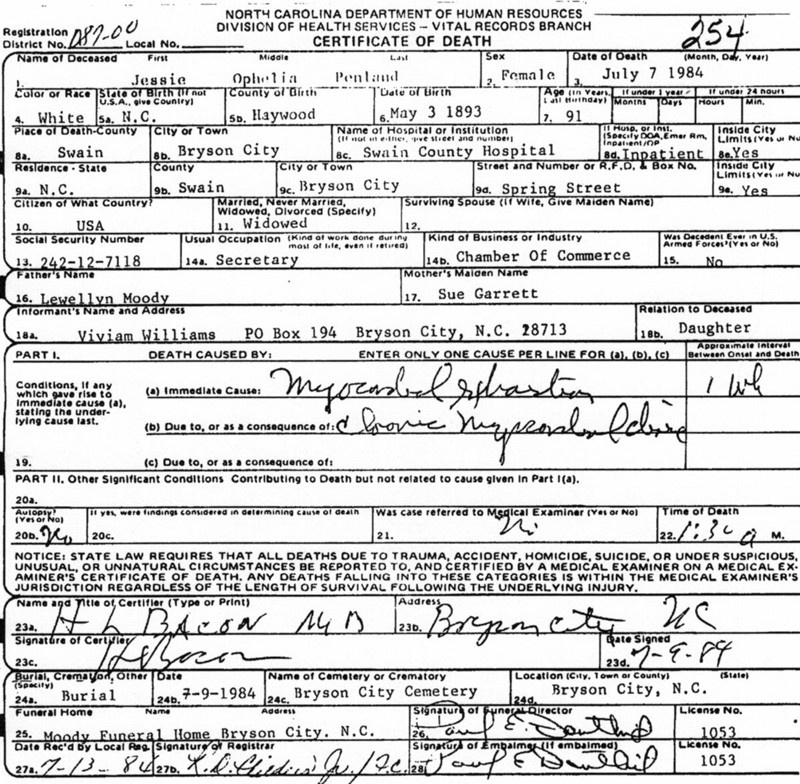 NORTH CAROLINA DEPARTMENT OF HUMAN RESOURCES
DIVISION OF HEALTH SERVICES - VITAL RECORDS BRANCH
CERTIFICATE OF DEATH
254
Registration District No. D87-00 Local No.
Name of Deceased First Middle Last Sex Date of Death (Month, Day, Year)
1. Jessie Ophelia Penland 2. Female 3. July 7 1984
Color or Race State of Birth (If not U.S.A., give Country) County of Birth Date of Birth Age (In Years, Last Birthday) If under 1 year Months Days If under 24 hours Hours Min.
4. White 5a. N.C. 5b. Haywood 6. May 3 1893 7. 91
Place of Death-County City or Town Name of Hospital or Institution (If not in either, give street and number) If Hosp. or Inst. (Specify DOA, Emer Rm, Inpatient/OP Inside City Limits(Yes or No
8a. Swain 8b. Bryson City 8c. Swain County Hospital 8d. Inpatient 8e. Yes
Residence - State County City or Town Street and Number or R.F.D. & Box No. Inside City Limits(Yes or No
9a. N.C. 9b. Swain 9c. Bryson City 9d. Spring Street 9e. Yes
Citizen of What Country? Married, Never Married, Widowed, Divorced (Specify) Surviving Spouse (If Wife, Give Maiden Name)
10. USA 11. Widowed 12.
Social Security Number Usual Occupation (Kind of work done during most of life, even if retired) Kind of Business or Industry Was Decedent Ever in U.S. Armed Forces?(Yes or No)
13. 242-12-7118 14a. Secretary 14b. Chamber Of Commerce 15. No
Father's Name Mother's Maiden Name
16. Lewellyn Moody 17. Sue Garrett
Informant's Name and Address Relation to Deceased
18a. Viviam Williams PO Box 194 Bryson City, N.C. 28713 18b. Daughter
PART I. DEATH CAUSED BY: ENTER ONLY ONE CAUSE PER LINE FOR (a), (b), (c) Approximate Interval Between Onset and Death
Conditions, if any which gave rise to immediate cause (a), stating the underlying cause last.
(a) Immediate Cause: Myocardial
(b) Due to, or as a consequence of: Chronic Myocardial
19. (c) Due to, or as a consequence of:
PART II. Other Significant Conditions Contributing to Death but not related to cause given in Part I(a).
20a.
Autopsy? (Yes or No) If yes, were findings considered in determining cause of death Was case referred to Medical Examiner (Yes or No) Time of Death
20b. No 20c. 21. No 22. 1:30 a M.
NOTICE: STATE LAW REQUIRES THAT ALL DEATHS DUE TO TRAUMA, ACCIDENT, HOMICIDE, SUICIDE, OR UNDER SUSPICIOUS,
UNUSUAL, OR UNNATURAL CIRCUMSTANCES BE REPORTED TO, AND CERTIFIED BY A MEDICAL EXAMINER ON A MEDICAL EX-
AMINER'S CERTIFICATE OF DEATH. ANY DEATHS FALLING INTO THESE CATEGORIES IS WITHIN THE MEDICAL EXAMINER'S
JURISDICTION REGARDLESS OF THE LENGTH OF SURVIVAL FOLLOWING THE UNDERLYING INJURY.
Name and Title of Certifier (Type or Print) Address
23a. H L BACON MD 23b. Bryson City NC
Signature of Certifier Date Signed
23c. H L Bacon 23d. 7-9-84
Burial, Cremation, Other (Specify) Date Name of Cemetery or Crematory Location (City, Town or County) (State)
24a. Burial 24b. 7-9-1984 24c. Bryson City Cemetery 24d. Bryson City, N.C.
Funeral Home Name Address Signature of Funeral Director License No.
25. Moody Funeral Home Bryson City. N.C. 26. Paul E. 1053
Date Rec'd by Local Reg. Signature of Registrar Signature of Embalmer (If embalmed) License No.
27a. 7-13-84 27b. 28. Paul E 1053